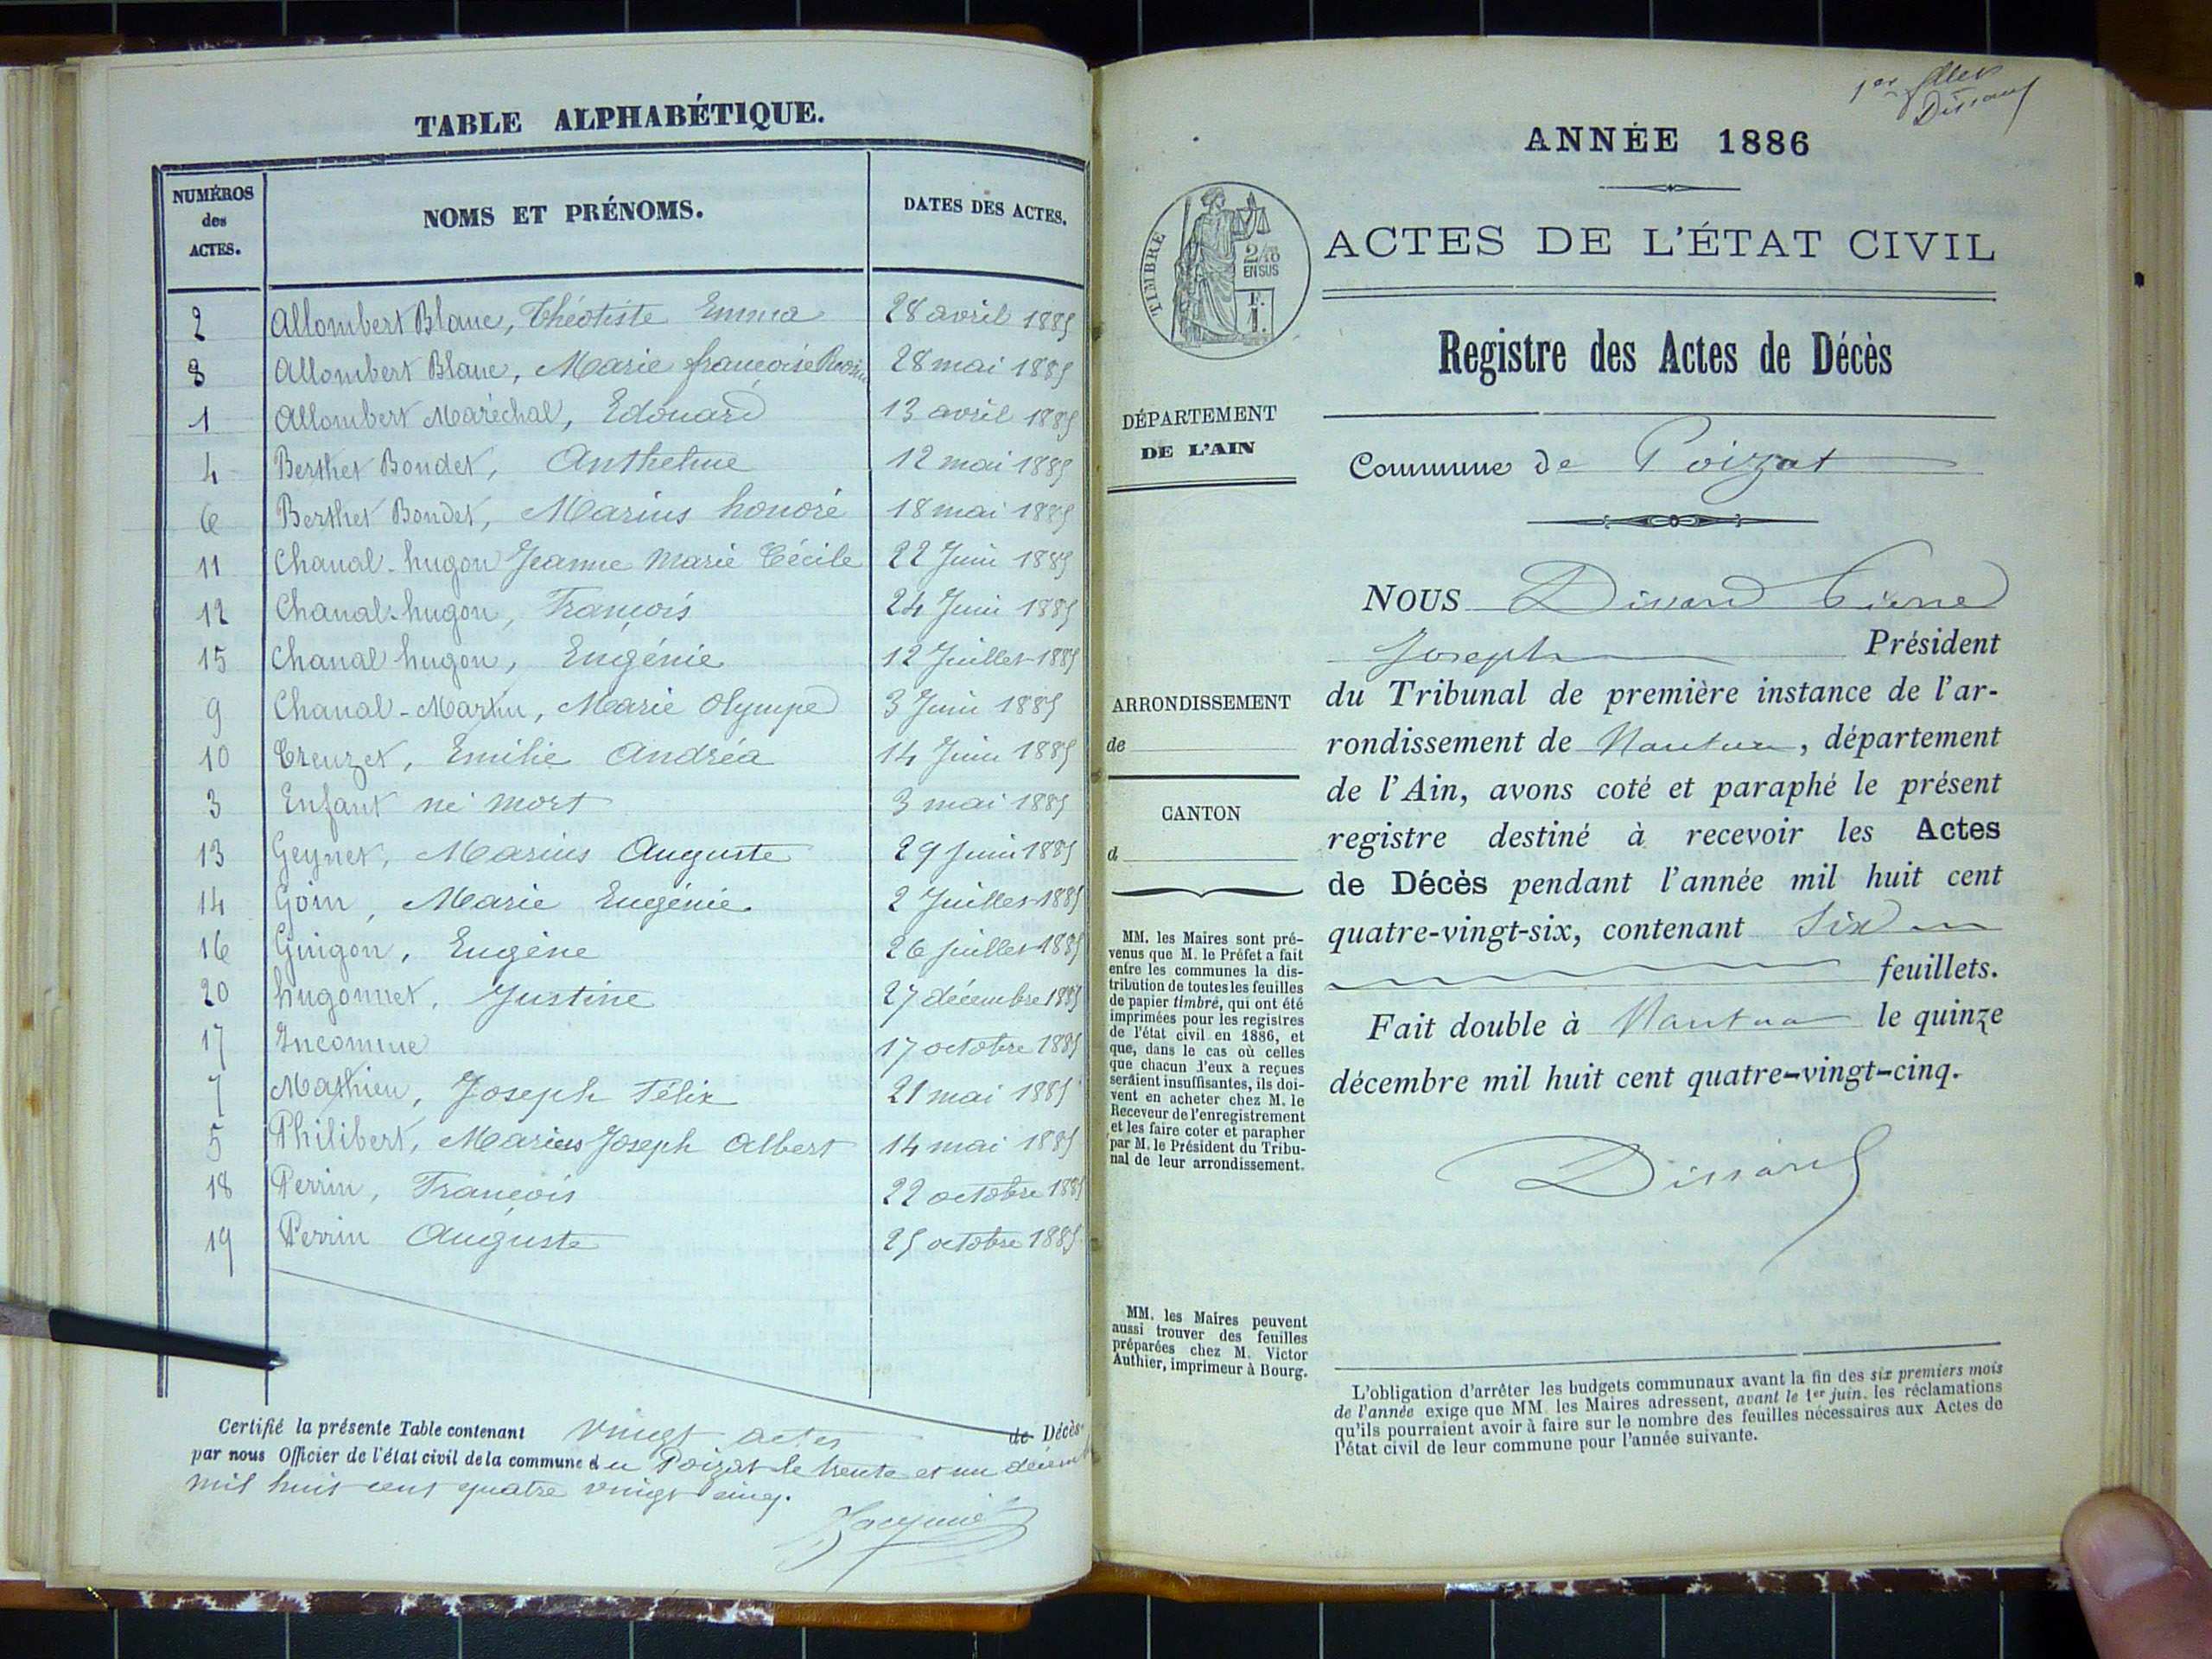 TABLE ALPHABÉTIQUE.
NUMÉROS des ACTES.
NOMS ET PRÉNOMS.
DATES DES ACTES.
2 Allombert Blanc, Théotiste Emma 28 avril 1885
8 Allombert Blanc, Marie françoise 28 mai 1885
1 Allombert Maréchal, Edouard 13 avril 1885
4 Berthet Bondet, Anthelme 12 mai 1885
6 Berthet Bondet, Marius honoré 18 mai 1885
11 Chanal-hugon Jeanne Marie Cécile 22 Juin 1885
12 Chanal-hugon, François 24 Juin 1885
15 Chanal hugon, Eugénie 12 Juillet 1885
9 Chanal-Martin, Marie Olympe 3 Juin 1885
10 Creuzet, Emilie Andréa 14 Juin 1885
3 Enfant né mort 3 mai 1885
13 Geynet, Marius Auguste 29 juin 1885
14 Goin, Marie Eugénie 2 Juillet 1885
16 Guigon, Eugène 26 juillet 1885
20 hugonnet, Justine 27 décembre 1885
17 Inconnue 17 octobre 1885
7 Mathieu, Joseph Félix 21 mai 1885
5 Philibert, Marius Joseph Albert 14 mai 1885
18 Perrin, François 22 octobre 1885
19 Perrin Auguste 25 octobre 1885
Certifié la présente Table contenant vingt actes de Décès
par nous Officier de l'état civil de la commune du Poizat le trente et un décemb
mil huit cent quatre vingt cinq.
ANNÉE 1886
TIMBRE
2/10
EN SUS
1 F.
ACTES DE L'ÉTAT CIVIL
Registre des Actes de Décès
DÉPARTEMENT
DE L'AIN
Commune de Poizat
NOUS Dissard Pierre
Joseph Président
du Tribunal de première instance de l'ar-
rondissement de Nantua, département
de l'Ain, avons coté et paraphé le présent
registre destiné à recevoir les Actes
de Décès pendant l'année mil huit cent
quatre-vingt-six, contenant Six
feuillets.
Fait double à Nantua le quinze
décembre mil huit cent quatre-vingt-cinq.
Dissard
ARRONDISSEMENT
de
CANTON
d
MM. les Maires sont pré-
venus que M. le Préfet a fait
entre les communes la dis-
tribution de toutes les feuilles
de papier timbré, qui ont été
imprimées pour les registres
de l'état civil en 1886, et
que, dans le cas où celles
que chacun d'eux a reçues
seraient insuffisantes, ils doi-
vent en acheter chez M. le
Receveur de l'enregistrement
et les faire coter et parapher
par M. le Président du Tribu-
nal de leur arrondissement.
MM. les Maires peuvent
aussi trouver des feuilles
préparées chez M. Victor
Authier, imprimeur à Bourg.
L'obligation d'arrêter les budgets communaux avant la fin des six premiers mois
de l'année exige que MM. les Maires adressent, avant le 1er juin, les réclamations
qu'ils pourraient avoir à faire sur le nombre des feuilles nécessaires aux Actes de
l'état civil de leur commune pour l'année suivante.